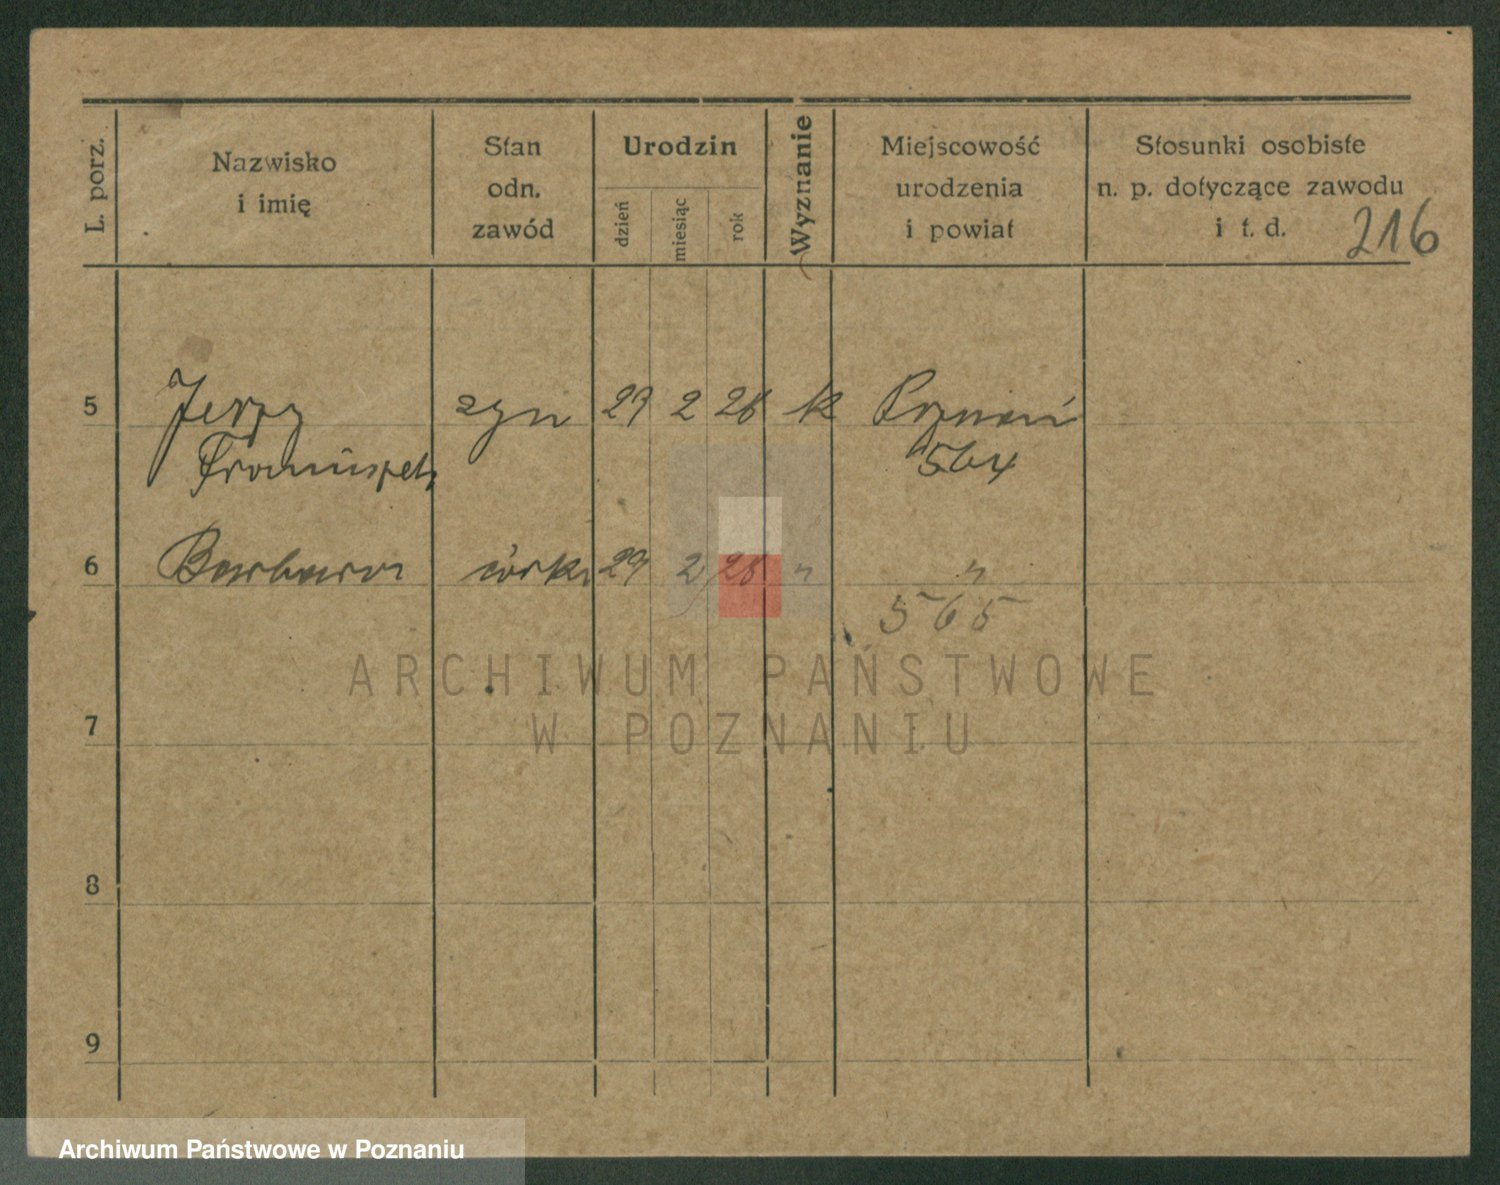 L. porz.
Nazwisko
i imię
Stan
odn.
zawód
Urodzin
dzień
miesiąc
rok
Wyznanie
Miejscowość
urodzenia
i powiat
Stosunki osobiste
n. p. dotyczące zawodu
i t. d.
216
5 Jerzy syn 29 2 28 k Poznań
Franciszek 564
6 Barbara córka 29 2 28 " "
565
7
8
9
ARCHIWUM PAŃSTWOWE
W POZNANIU
Archiwum Państwowe w Poznaniu